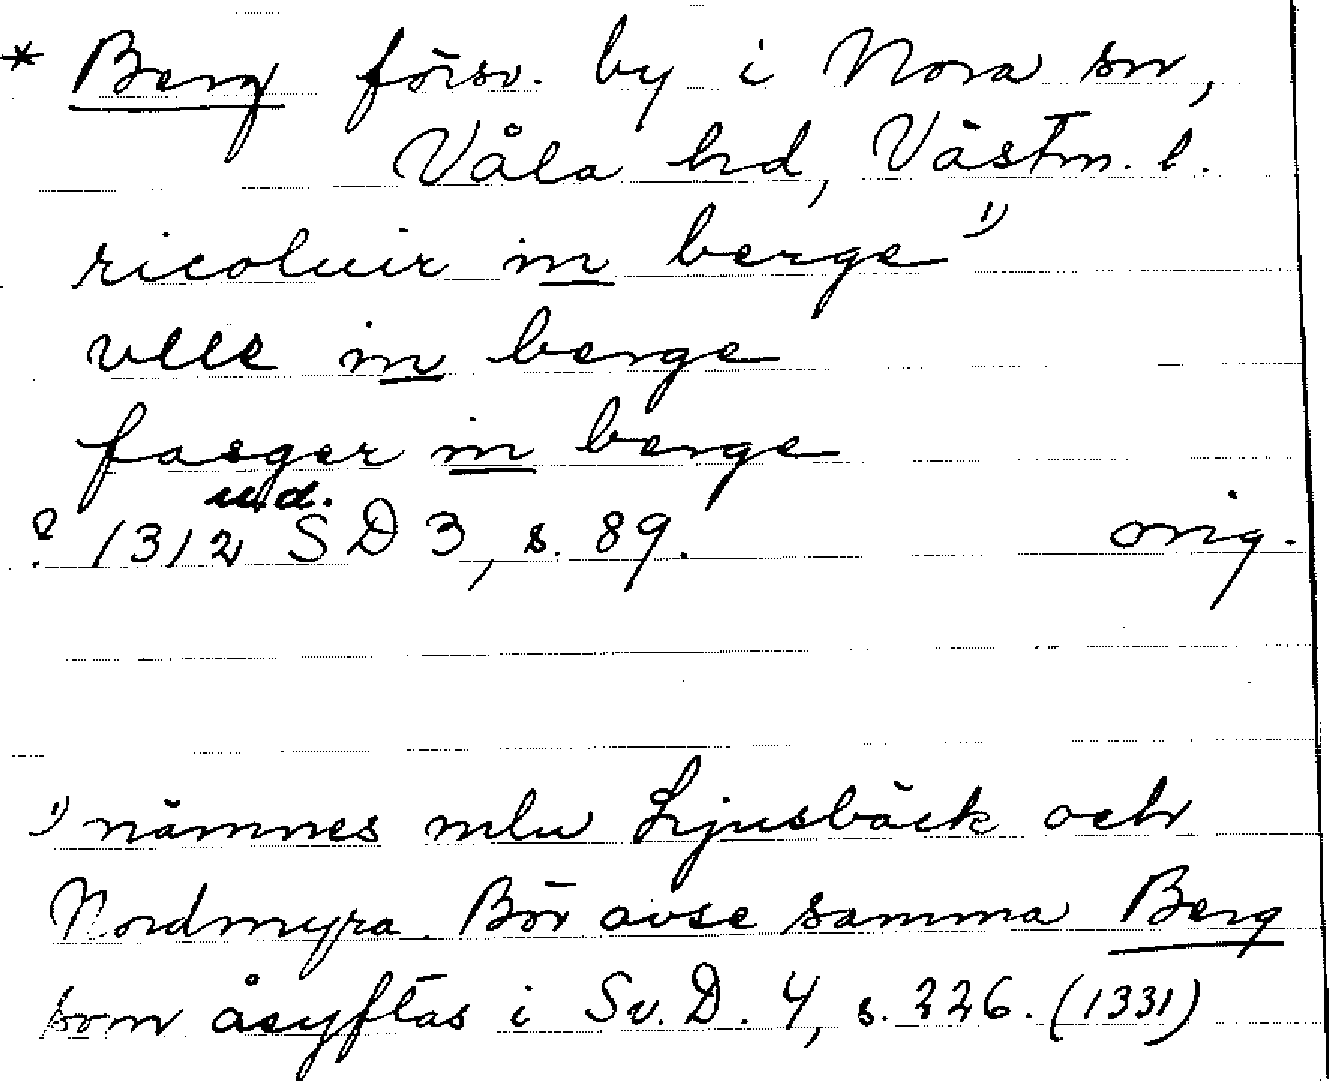 * Berg försv. by i Nora sn,
Våla hd, Västm. l.
ricoluir in berge 1)
ulle in berge
fasger in berge
u.d.
? 1312 SD 3, s. 89. orig.
1) nämnes mlu Ljusbäck och
Nordmyra. Bör avse samma Berg
som åsyftas i Sv. D. 4, s. 226. (1331)